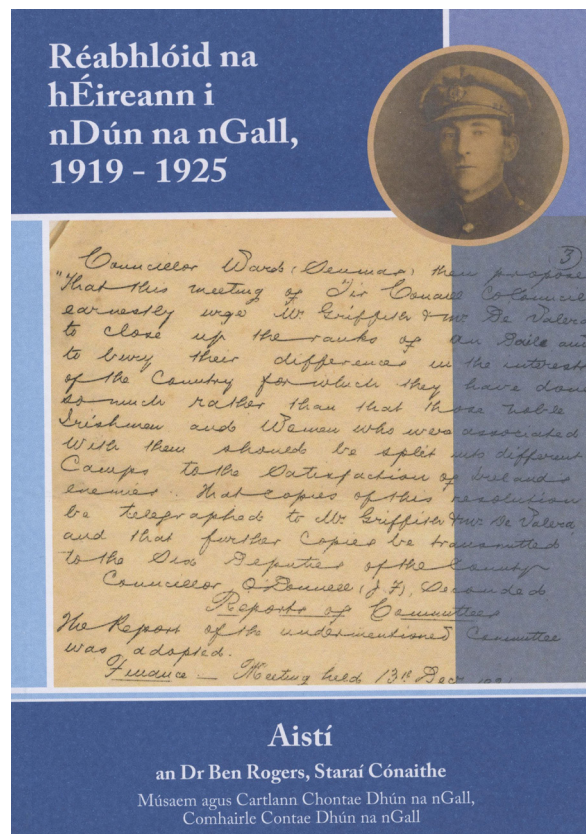 Réabhlóid na
hÉireann i
nDún na nGall,
1919 - 1925
3
Councillor Ward (Seumas) then propose
"That this meeting of Tir Conaill Co Council
earnestly urge Mr. Griffith & Mr De Valera
to close up the ranks of an Dail and
to bury their difference in the interest
of the Country for which they have don
so much rather than that those noble
Irishmen and Women who was associated
with them should be split into different
Camps to the Satisfaction of Irelands
enemies. That copies of this resolution
be telegraphed to Mr. Griffith & Mr De Valera,
and that further copies be transmitted
to the Six Deputies of the County
Councillor O'Donnell (J.F), Seconded
Reports of Committees
The Report of the undermentioned Committee
was adopted.
Finance — Meeting held 13th Decr
Aistí
an Dr Ben Rogers, Staraí Cónaithe
Músaem agus Cartlann Chontae Dhún na nGall,
Comhairle Contae Dhún na nGall